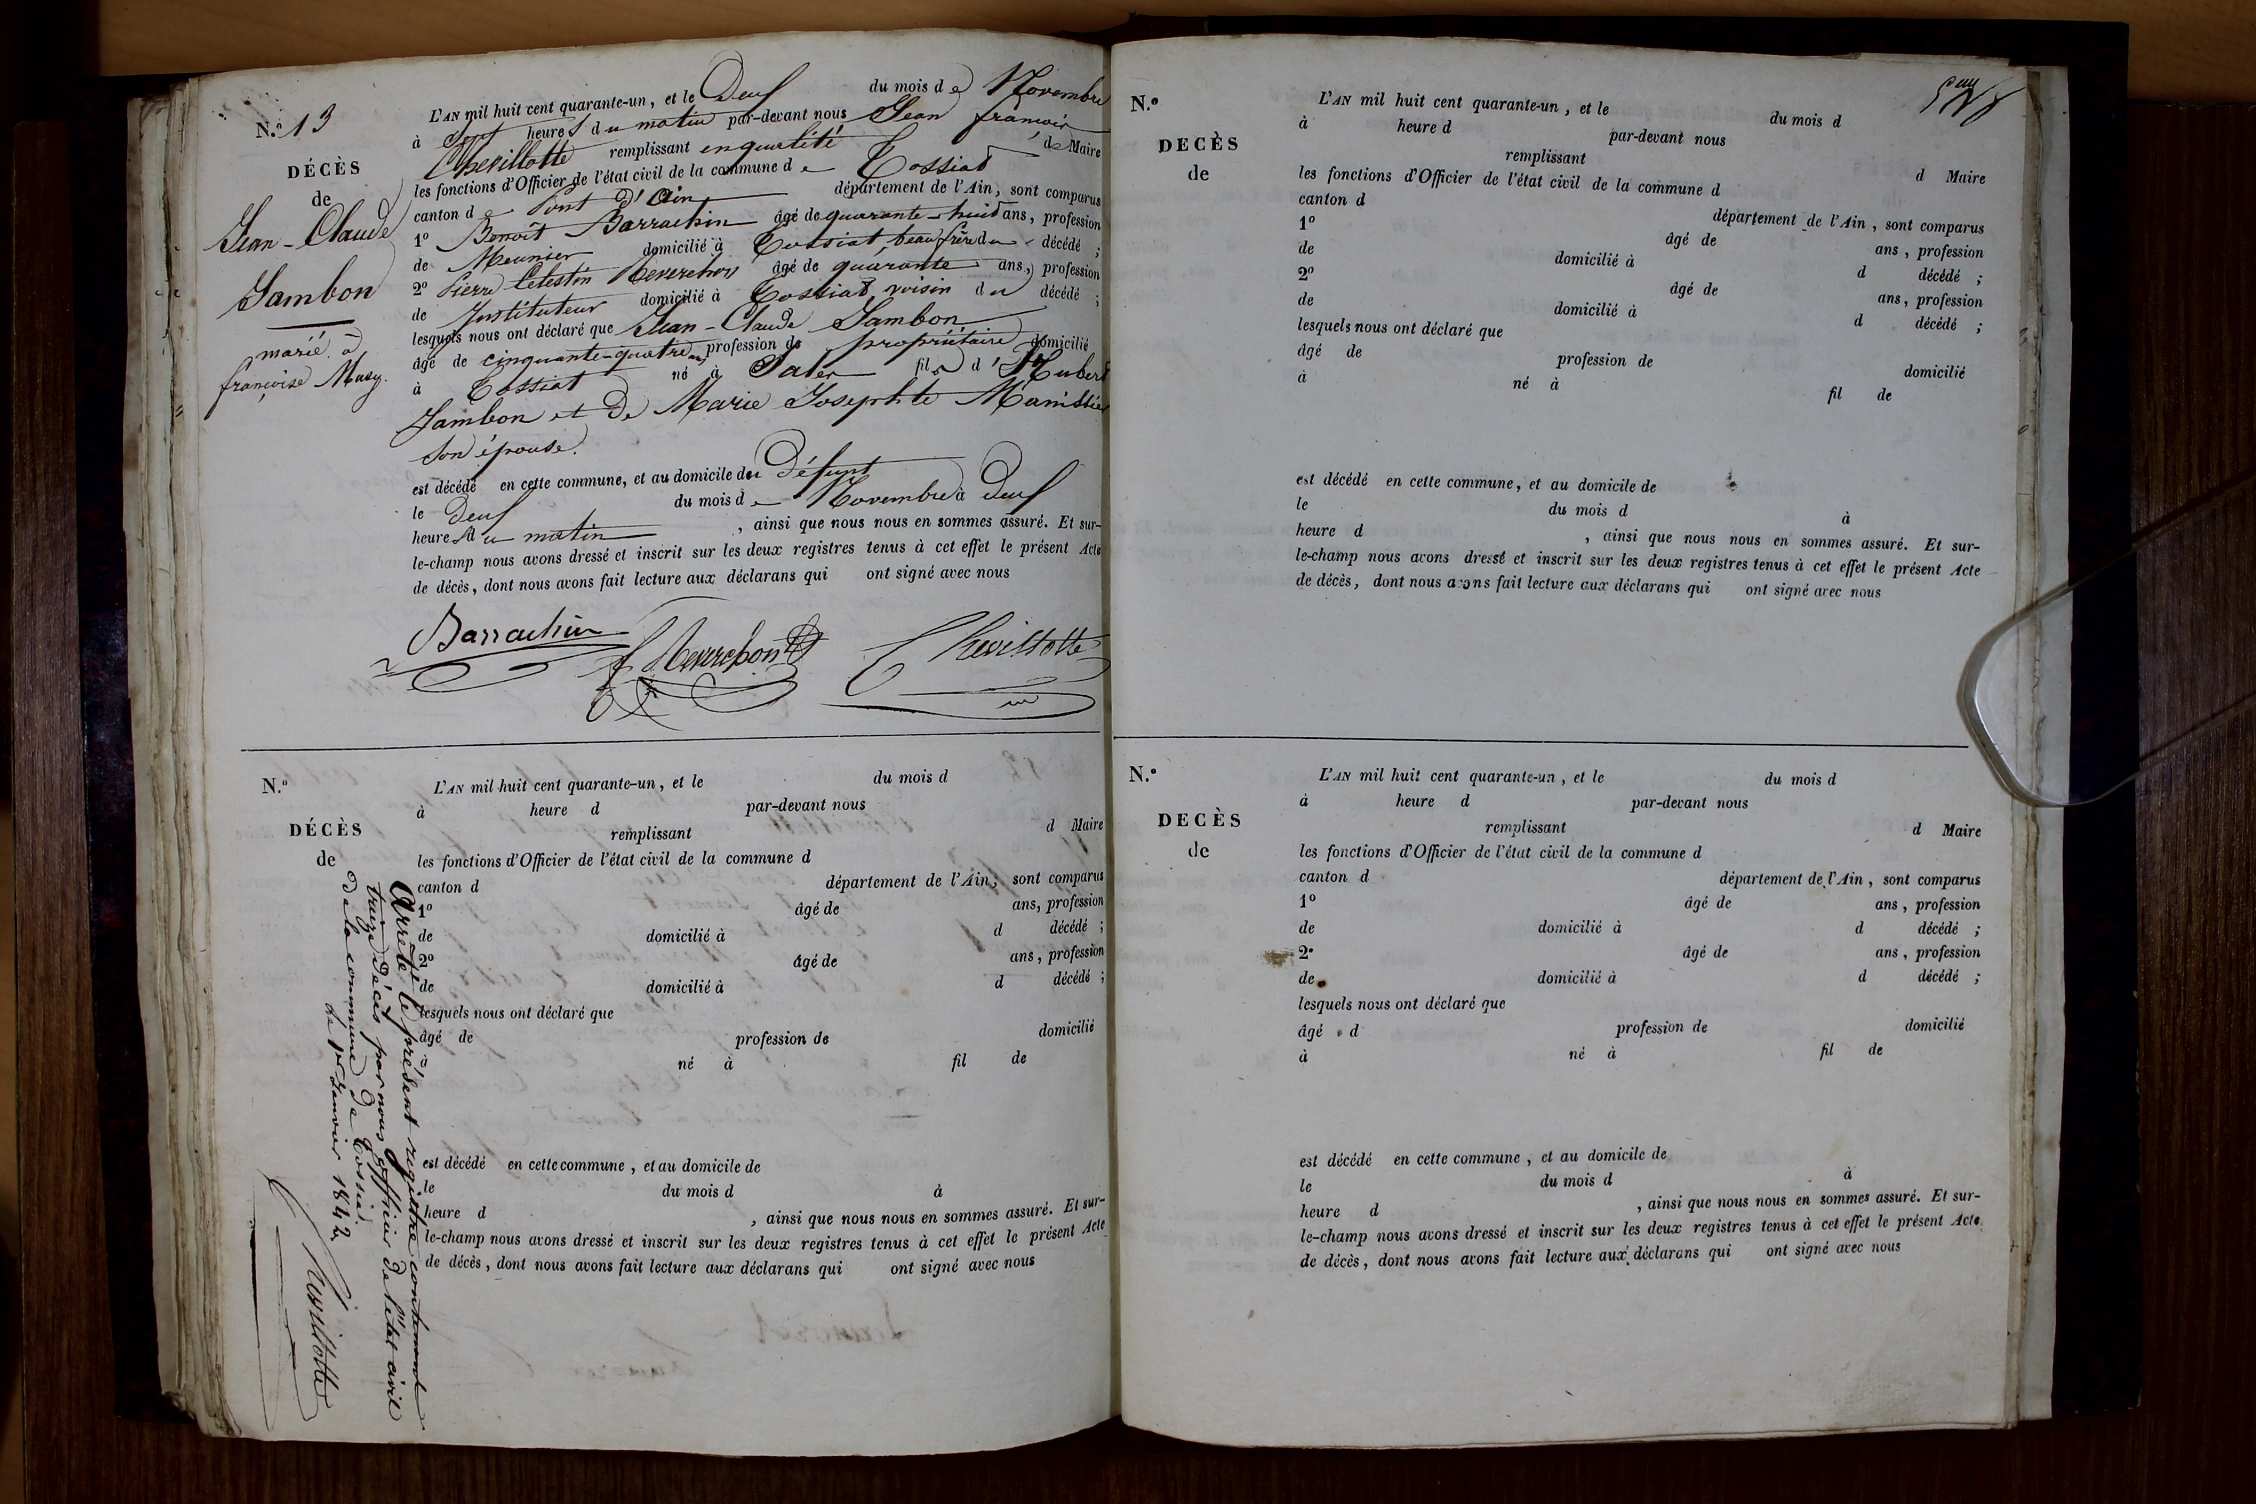 N.º 13
DÉCÈS
de
Jean-Claude
Jambon
marié à
françoise Mury.
L'AN mil huit cent quarante-un, et le Deux du mois de Novembre
à Sept heures du matin par-devant nous Jean francois
Chevillotte remplissant en qualité de Maire
les fonctions d'Officier de l'état civil de la commune de Tossiat
canton de Pont d'Ain département de l'Ain, sont comparus
1º Benoît Barrachin âgé de quarante-huit ans, profession
de Meunier domicilié à Tossiat beau frère du décédé ;
2º Pierre Célestin Reverchon âgé de quarante ans, profession
de Instituteur domicilié à Tossiat voisin du décédé ;
lesquels nous ont déclaré que Jean-Claude Jambon
âgé de cinquante-quatre ans profession de propriétaire domicilié
à Tossiat né à fils d'Hubert
Jambon et de Marie Josephte
son épouse.
est décédé en cette commune, et au domicile du Défunt
le Deux du mois de Novembre à Deux
heures du matin , ainsi que nous nous en sommes assuré. Et sur-
le-champ nous avons dressé et inscrit sur les deux registres tenus à cet effet le présent Acte
de décès, dont nous avons fait lecture aux déclarans qui ont signé avec nous
Barrachin Reverchon Chevillotte
N.º
DÉCÈS
de
L'AN mil huit cent quarante-un, et le du mois d
à heure d par-devant nous
remplissant d Maire
les fonctions d'Officier de l'état civil de la commune d
canton d département de l'Ain, sont comparus
1º âgé de ans, profession
de domicilié à d décédé ;
2º âgé de ans, profession
de domicilié à d décédé ;
lesquels nous ont déclaré que
âgé de profession de domicilié
à né à fil de
est décédé en cette commune, et au domicile de
le du mois d à
heure d , ainsi que nous nous en sommes assuré. Et sur-
le-champ nous avons dressé et inscrit sur les deux registres tenus à cet effet le présent Acte
de décès, dont nous avons fait lecture aux déclarans qui ont signé avec nous
Arrêté le présent registre contenant
treize décès par nous officier de l'état civil
de la commune de Tossiat
le 1er Janvier 1842
Chevillotte
N.º
DECÈS
de
L'AN mil huit cent quarante-un, et le du mois d
à heure d par-devant nous
remplissant d Maire
les fonctions d'Officier de l'état civil de la commune d
canton d département de l'Ain, sont comparus
1º âgé de ans, profession
de domicilié à d décédé ;
2º âgé de ans, profession
de domicilié à d décédé ;
lesquels nous ont déclaré que
âgé de profession de domicilié
à né à fil de
est décédé en cette commune, et au domicile de
le du mois d à
heure d , ainsi que nous nous en sommes assuré. Et sur-
le-champ nous avons dressé et inscrit sur les deux registres tenus à cet effet le présent Acte
de décès, dont nous avons fait lecture aux déclarans qui ont signé avec nous
N.º
DECÈS
de
L'AN mil huit cent quarante-un, et le du mois d
à heure d par-devant nous
remplissant d Maire
les fonctions d'Officier de l'état civil de la commune d
canton d département de l'Ain, sont comparus
1º âgé de ans, profession
de domicilié à d décédé ;
2º âgé de ans, profession
de domicilié à d décédé ;
lesquels nous ont déclaré que
âgé d profession de domicilié
à né à fil de
est décédé en cette commune, et au domicile de
le du mois d à
heure d , ainsi que nous nous en sommes assuré. Et sur-
le-champ nous avons dressé et inscrit sur les deux registres tenus à cet effet le présent Acte
de décès, dont nous avons fait lecture aux déclarans qui ont signé avec nous